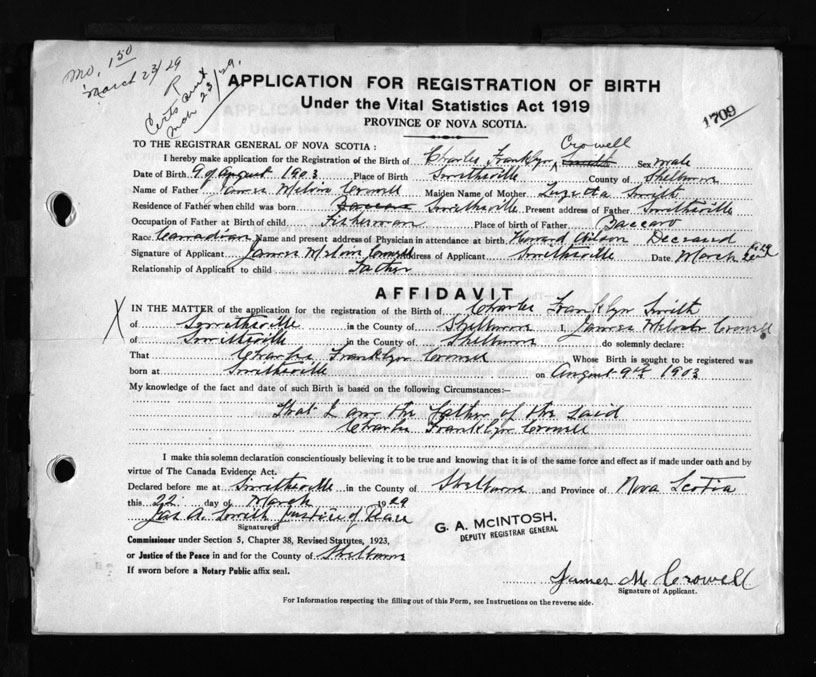 Mo. 150
March 23/29
R
Certs sent
Mch 23/29.
APPLICATION FOR REGISTRATION OF BIRTH
Under the Vital Statistics Act 1919
PROVINCE OF NOVA SCOTIA.
1709
TO THE REGISTRAR GENERAL OF NOVA SCOTIA:
Crowell
I hereby make application for the Registration of the Birth of Charles Franklyn Smith Sex male
Date of Birth 9 of August 1903 Place of Birth Smithsville County of Shelburne
Name of Father James Melvin Crowell Maiden Name of Mother Smith
Residence of Father when child was born Baccaro Smithsville Present address of Father Smithsville
Occupation of Father at Birth of child Fisherman Place of birth of Father Baccaro
Race Canadian Name and present address of Physician in attendance at birth Howard Wilson Deceased
Signature of Applicant James Melvin Crowell Address of Applicant Smithsville Date March 22nd 1929
Relationship of Applicant to child Father
AFFIDAVIT
X IN THE MATTER of the application for the registration of the Birth of Charles Franklyn Smith
of Smithsville in the County of Shelburne I, James Melvin Crowell
of Smithsville in the County of Shelburne do solemnly declare:
That Charles Franklyn Crowell Whose Birth is sought to be registered was
born at Smithsville on August 9th 1903
My knowledge of the fact and date of such Birth is based on the following Circumstances:—
That I am the Father of the said
Charles Franklyn Crowell
I make this solemn declaration conscientiously believing it to be true and knowing that it is of the same force and effect as if made under oath and by
virtue of The Canada Evidence Act.
Declared before me at Smithsville in the County of Shelburne and Province of Nova Scotia
this 22 day of March 1929
Jas A. Smith Justice of Peace
Signature of
G. A. McINTOSH,
DEPUTY REGISTRAR GENERAL
Commissioner under Section 5, Chapter 38, Revised Statutes, 1923,
or Justice of the Peace in and for the County of Shelburne
If sworn before a Notary Public affix seal.
James M. Crowell
Signature of Applicant.
For Information respecting the filling out of this Form, see Instructions on the reverse side.